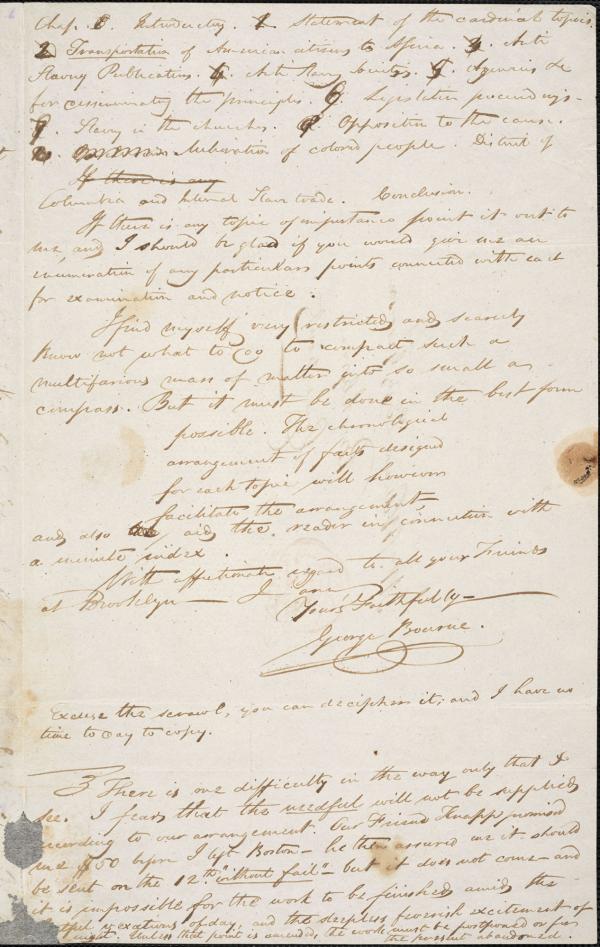 Chap. 0. Introductory 1. Statement of the cardinal topics.
2 Transportation of American citizens to Africa. 3. Anti
Slavery Publications. 4. Anti Slavery Societies. 5. Agencies &c
for disseminating the principles. 6 Legislative proceedings.
7. Slavery in the churches. 8 Opposition to the cause.
of colored people. District of
If there is any
Columbia and Internal Slave trade. Conclusion.
If there is any topic of importance point it out to
me, and I should be glad if you would give me an
enumeration of any particulars points connected with each
for examination and notice.
I find myself very restricted and scarcely
know not what to do to compact such a
multifarious mass of matter into so small a
compass. But it must be done in the best form
possible. The chronological
arrangement of facts designed
for each topic will however
facilitate the arrangement,
and also aid the reader in connection with
a minute index.
With affectionate regard to all your Friends
at Brooklyn — I am
Yours Faithfully —
George Bourne.
Excuse the scrawl, you can decipher it; and I have no
time to day to copy.
There is one difficulty in the way only that I
see. I fear that the needful will not be supplied
according to our arrangement. Our Friend Knapp promised
me $50 before I left Boston — he then assured me it should
be sent on the 12th "without fail" — but it does not come — and
it is impossible for the work to be finished amid the
vexations of day, and the sleepless feverish excitement of
night. Unless that point is amended, the work must be postponed or for
the present abandoned.